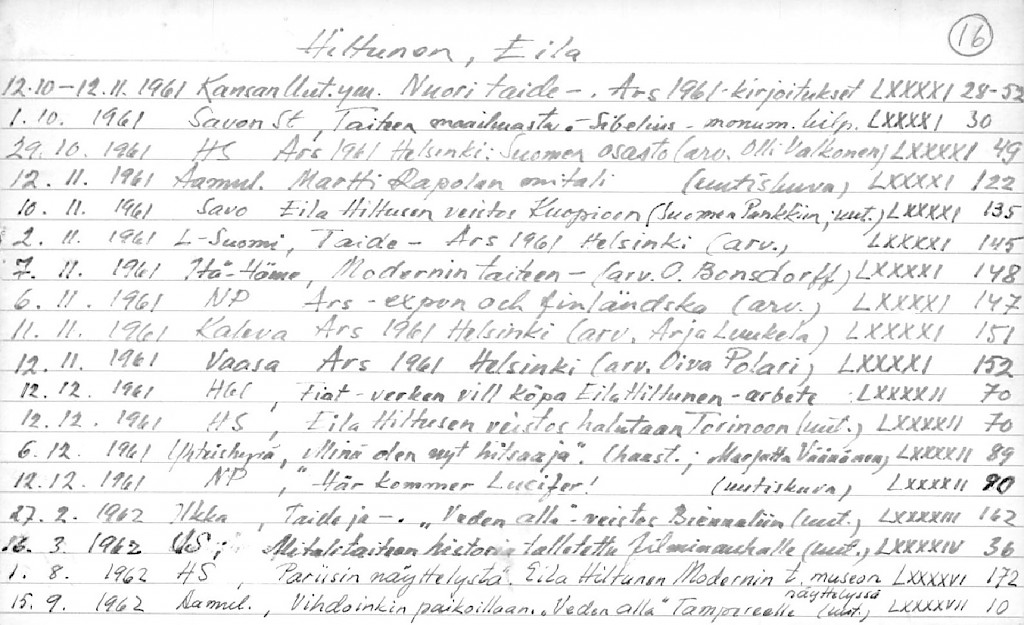 16
Hiltunen, Eila
12.10-12.11.1961 Kansan Uut.ym. Nuori taide -. Ars 1961-kirjoitukset LXXXXI 28-52
1.10. 1961 Savon St, Taiteen maailmasta.- Sibelius-monum. kilp. LXXXXI 30
29.10. 1961 HS Ars 1961 Helsinki: Suomen osasto (arv. Olli Valkonen) LXXXXI 49
12. 11. 1961 Aamul. Martti Rapolan mitali (uutiskuva) LXXXXI 122
10. 11. 1961 Savo Eila Hiltusen veistos Kuopioon (Suomen Pankkiin, uut.) LXXXXI 135
2. 11. 1961 L-Suomi, Taide - Ars 1961 Helsinki (arv.) LXXXXI 145
7. 11. 1961 Itä-Häme, Modernin taiteen - (arv. O. Bonsdorff) LXXXXI 148
6. 11. 1961 NP Ars-expon och finländska (arv.) LXXXXI 147
11. 11. 1961 Kaleva Ars 1961 Helsinki (arv. Arja Luukela) LXXXXI 151
12. 11. 1961 Vaasa Ars 1961 Helsinki (arv. Oiva Polari) LXXXXI 152
12. 12. 1961 , Fiat-verken vill köpa Eila Hiltunen-arbete LXXXXII 70
12. 12. 1961 HS, Eila Hiltusen veistos halutaan Torinoon (uut.) LXXXXII 70
6. 12. 1961 Yhteishyvä, "Minä olen nyt hitsaaja". (haast.; Marjatta Väänänen) LXXXXII 89
12. 12. 1961 NP, "Här kommer Lucifer! (uutiskuva) LXXXXII 90
27. 2. 1962 Ilkka, Taide ja -. "Veden alla"-veistos Biennaliin (uut.) LXXXXIII 162
16. 3. 1962 US; Mitalitaiteen historia talletettu filminauhalle (uut.) LXXXXIV 36
1. 8. 1962 HS, Pariisin näyttelystä. Eila Hiltunen Modernin t. museon näyttelyssä LXXXXVI 172
15. 9. 1962 Aamul., Vihdoinkin paikoillaan. "Veden alla" Tampereelle (uut.) LXXXXVII 10